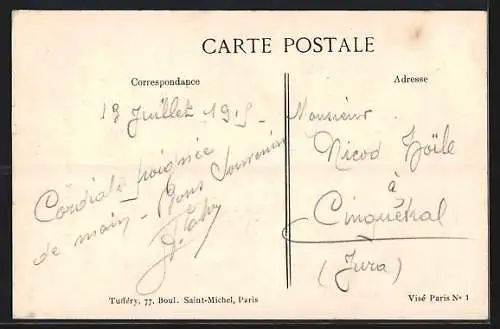 CARTE POSTALE
Correspondance
Adresse
19 Juillet 1915 -
Cordiale poignée
de main - Bons Souvenirs
Monsieur
Nicod
à
Cinquétral
(Jura)
Tufféry, 77, Boul. Saint-Michel, Paris
Visé Paris No 1